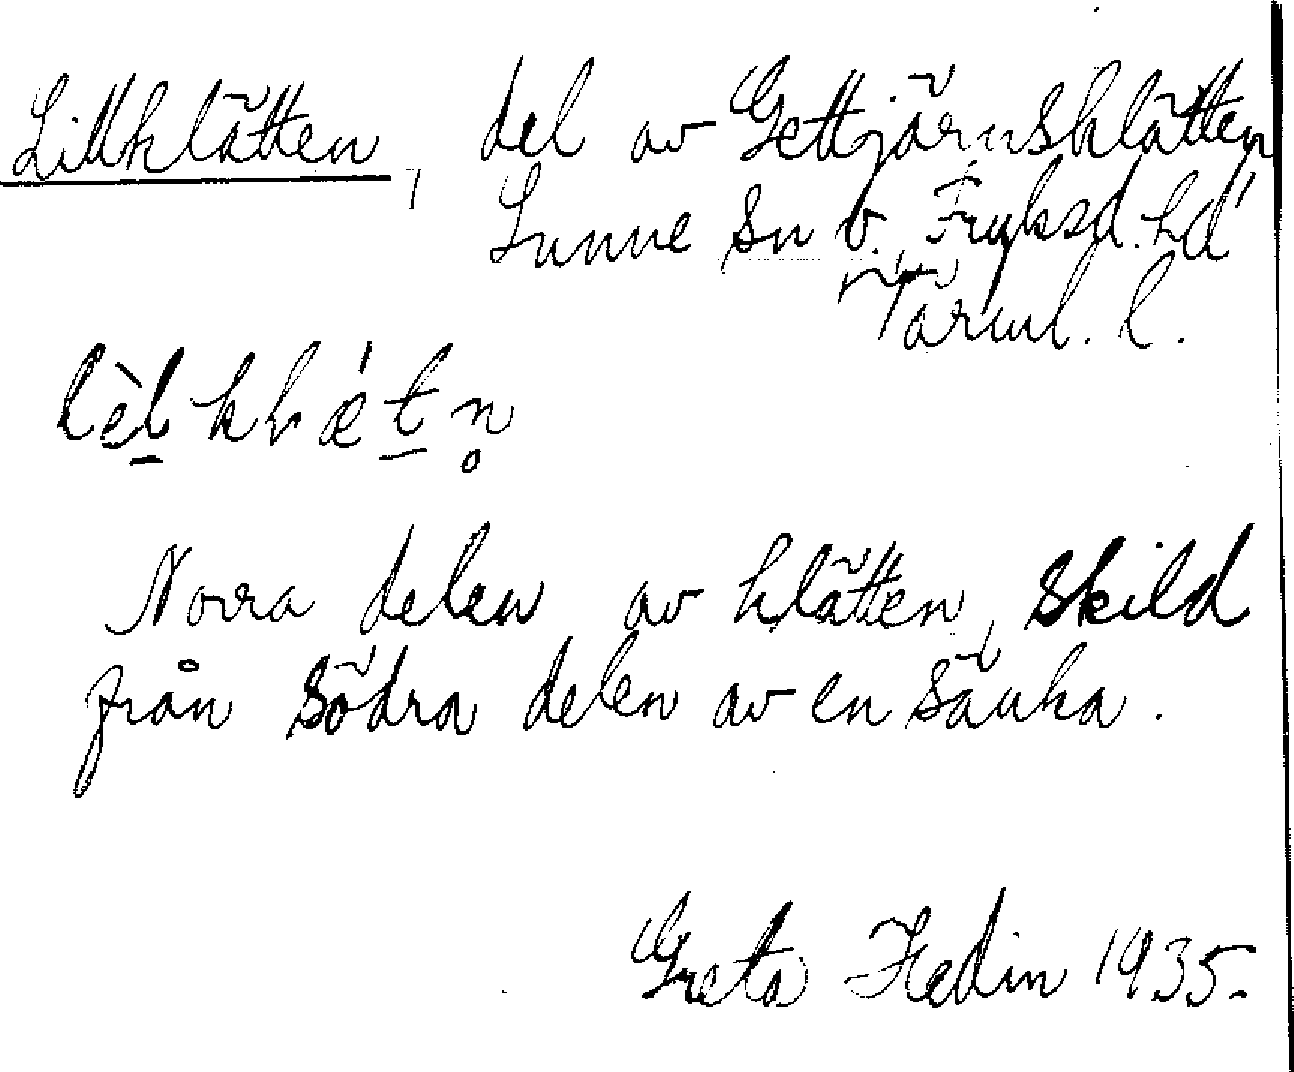 Lillklätten, del av Gettjärnsklätten
Sunne sn v. Fryksd. hd
Värml. l.
lèl klǽtn̥
Norra delen av klätten, skild
från södra delen av en sänka.
Greta Hedin 1935.